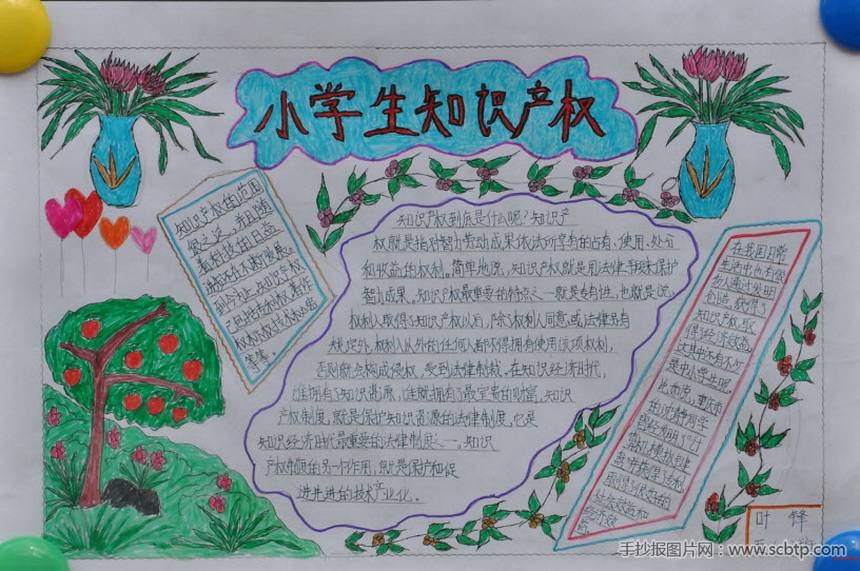 小学生知识产权
知识产权的范围
着科技的日益
进步在不断发展。
到今为止,知识产权
等等。
知识产权到底是什么呢?知识产
权就是指对智力劳动成果依法所享有的占有、使用、处分
和收益的权利。简单地说,知识产权就是用法律手段来保护
智力成果。知识产权最重要的特点之一就是专有性,也就是说:
权利人取得了知识产权以后,除了权利人同意,或法律另有
规定外,权利人以外的任何人都不得拥有使用该项权利,
否则就会构成侵权,受到法律制裁。在知识经济时代,
谁拥有了知识资源,谁就拥有了最宝贵的财富,知识
产权制度,就是保护知识资源的法律制度,它是
知识经济时代最重要的法律制度之一。知识
产权制度的另一作用,就是保护和促
进先进的技术产业化。
在我国日常
生活中也有很
多人通过发明
创造,获得了
知识产权,取
得了经济效益,
这其中还有不少
是中小学生呢。
比如说,重庆市
社会效益和
叶锋
手抄报图片网:www.scbtp.com